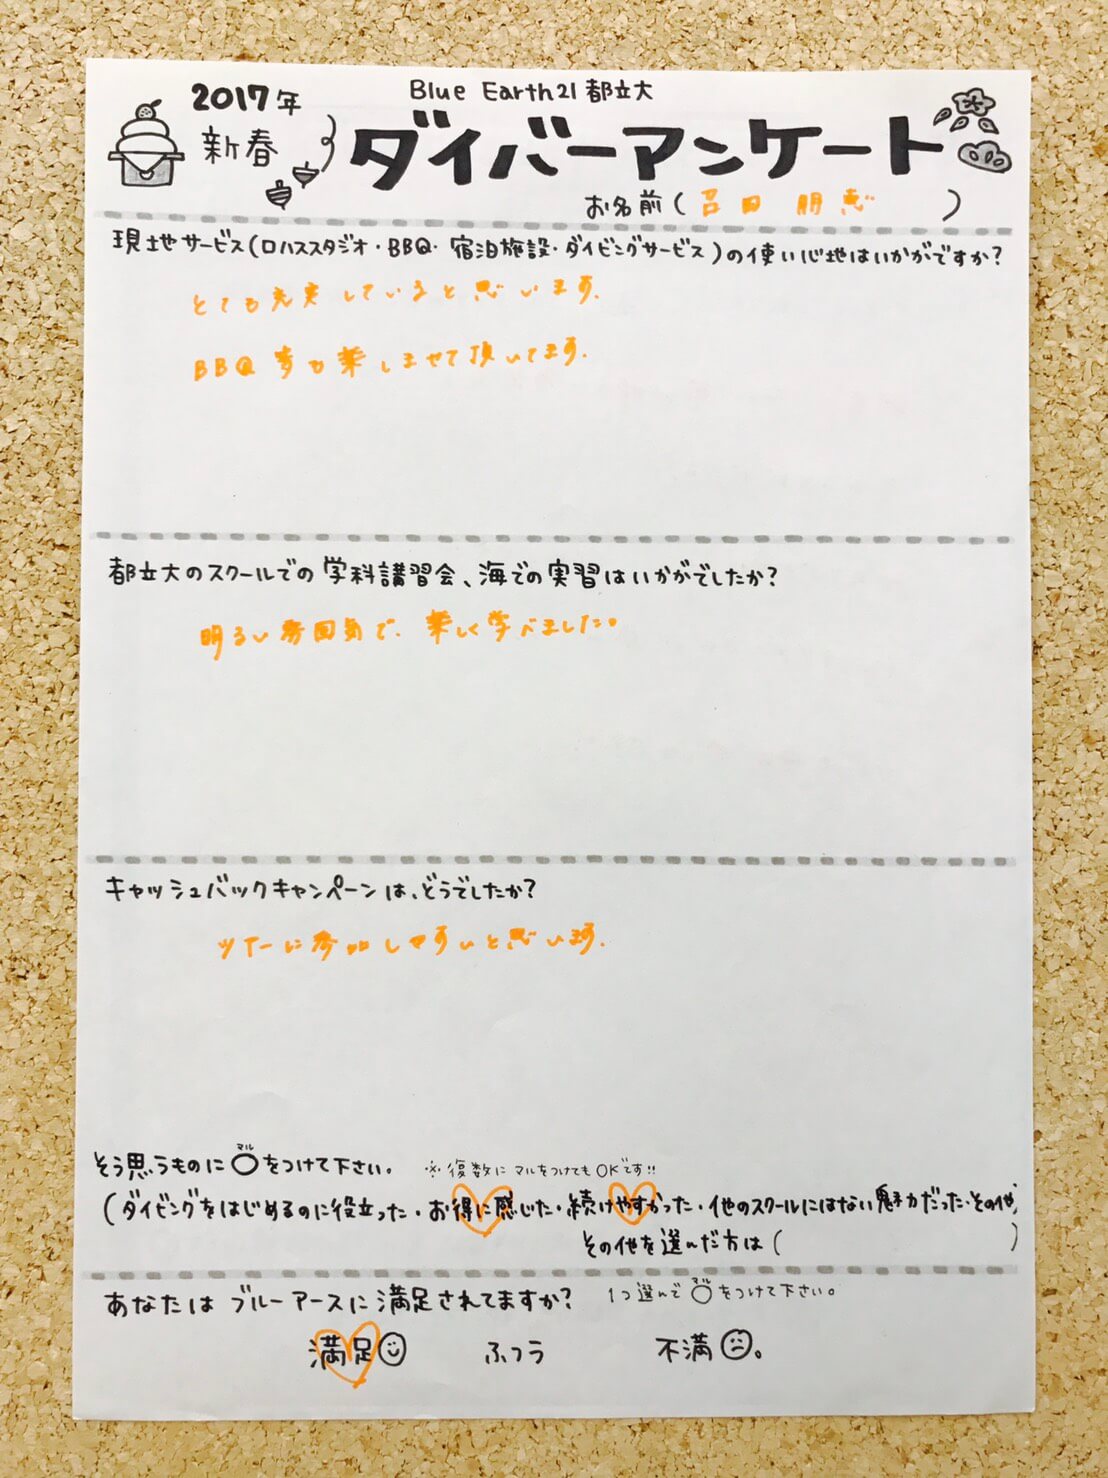 2017年
新春
Blue Earth21都立大
ダイバーアンケート
お名前( 呂田 朋恵 )
現地サービス(ロハススタジオ・BBQ・宿泊施設・ダイビングサービス)の使い心地はいかがですか?
とても充実していると思います。
BBQ等も楽しませて頂いてます。
都立大のスクールでの学科講習会、海での実習はいかがでしたか?
明るい雰囲気で、楽しく学べました。
キャッシュバックキャンペーンは、どうでしたか?
ツアーに参加しやすいと思います。
マル
そう思うものに〇をつけて下さい。 ※復数にマルをつけてもOKです!!
(ダイビングをはじめるのに役立った・お得に感じた・続けやすかった・他のスクールにはない魅力だった・その他)
その他を選んだ方は( )
マル
あなたはブルーアースに満足されてますか? 1つ選んで〇をつけて下さい。
満足 ふつう 不満。